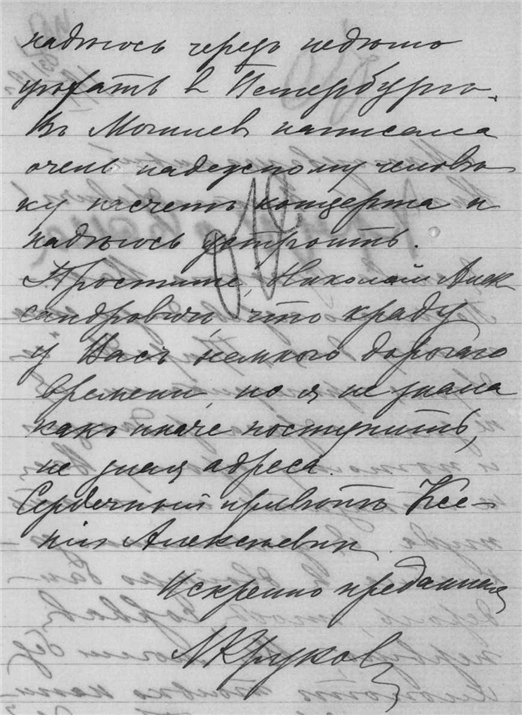 надѣюсь черезъ недѣлю
уѣхать въ Петербургъ.
Въ Могилевъ написала
очень надежному человѣ-
ку насчетъ концерта и
надѣюсь устроить.
Простите, Николай Алек
сандровичъ, что краду
у Васъ немного дорогаго
времени, но я не знала
какъ иначе поступить,
не зная адреса.
Сердечный привѣтъ Ксе-
ніи Алексѣевнѣ
Искренно преданная